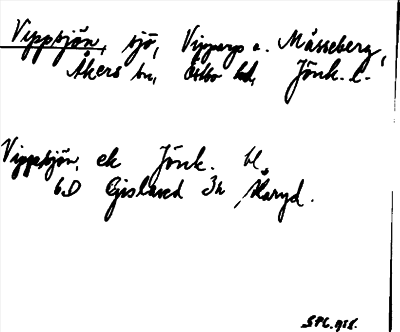 Vippsjön, sjö, Vipparp o. Måsseberg,
Åkers sn, Östbo hd, Jönk. l.
Vippsjön, ek Jönk. bl.
6D Gislaved 3h Åkaryd.
SPL. 1958.